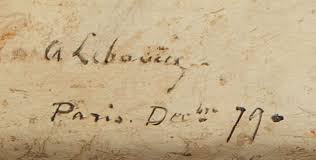 A Lebourg
Paris. Decbre 79.